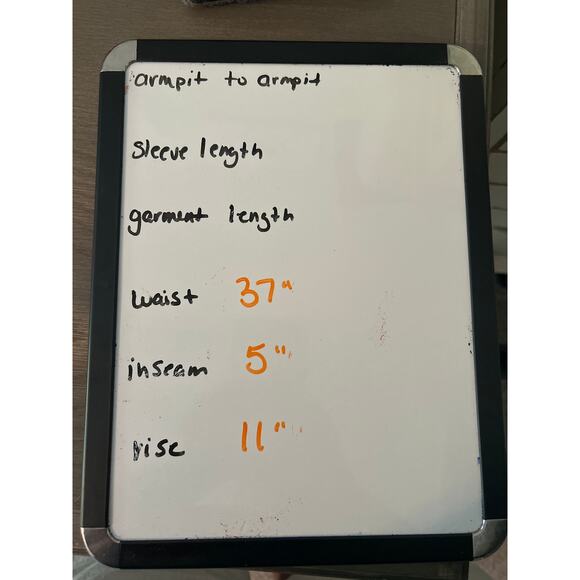 armpit to armpit
sleeve length
garment length
waist 37"
inseam 5"
rise 11"